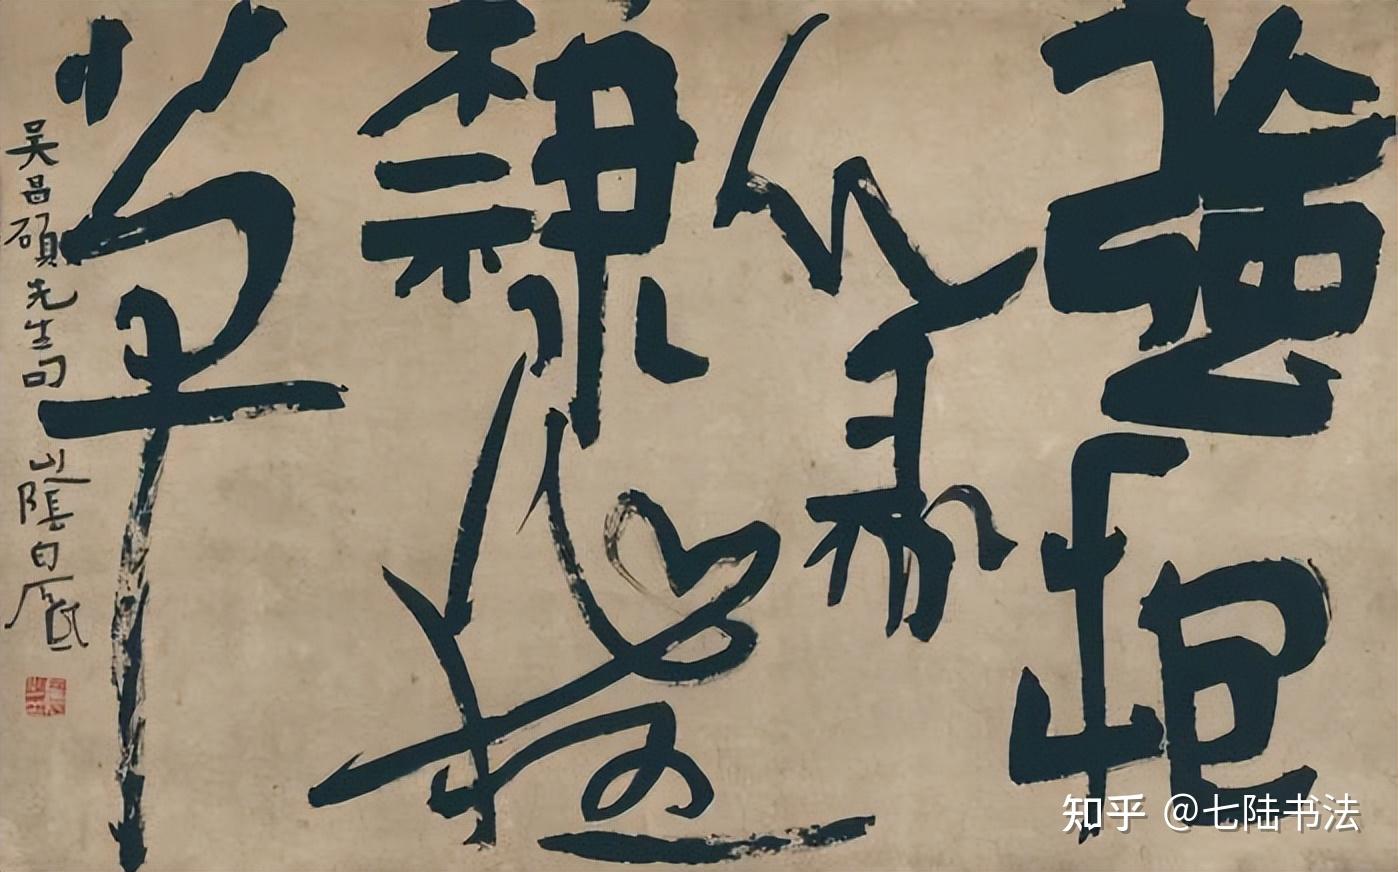 強抱
篆
隸作狂
草
吴昌碩先生句 山陰白砥
知乎 @七陆书法